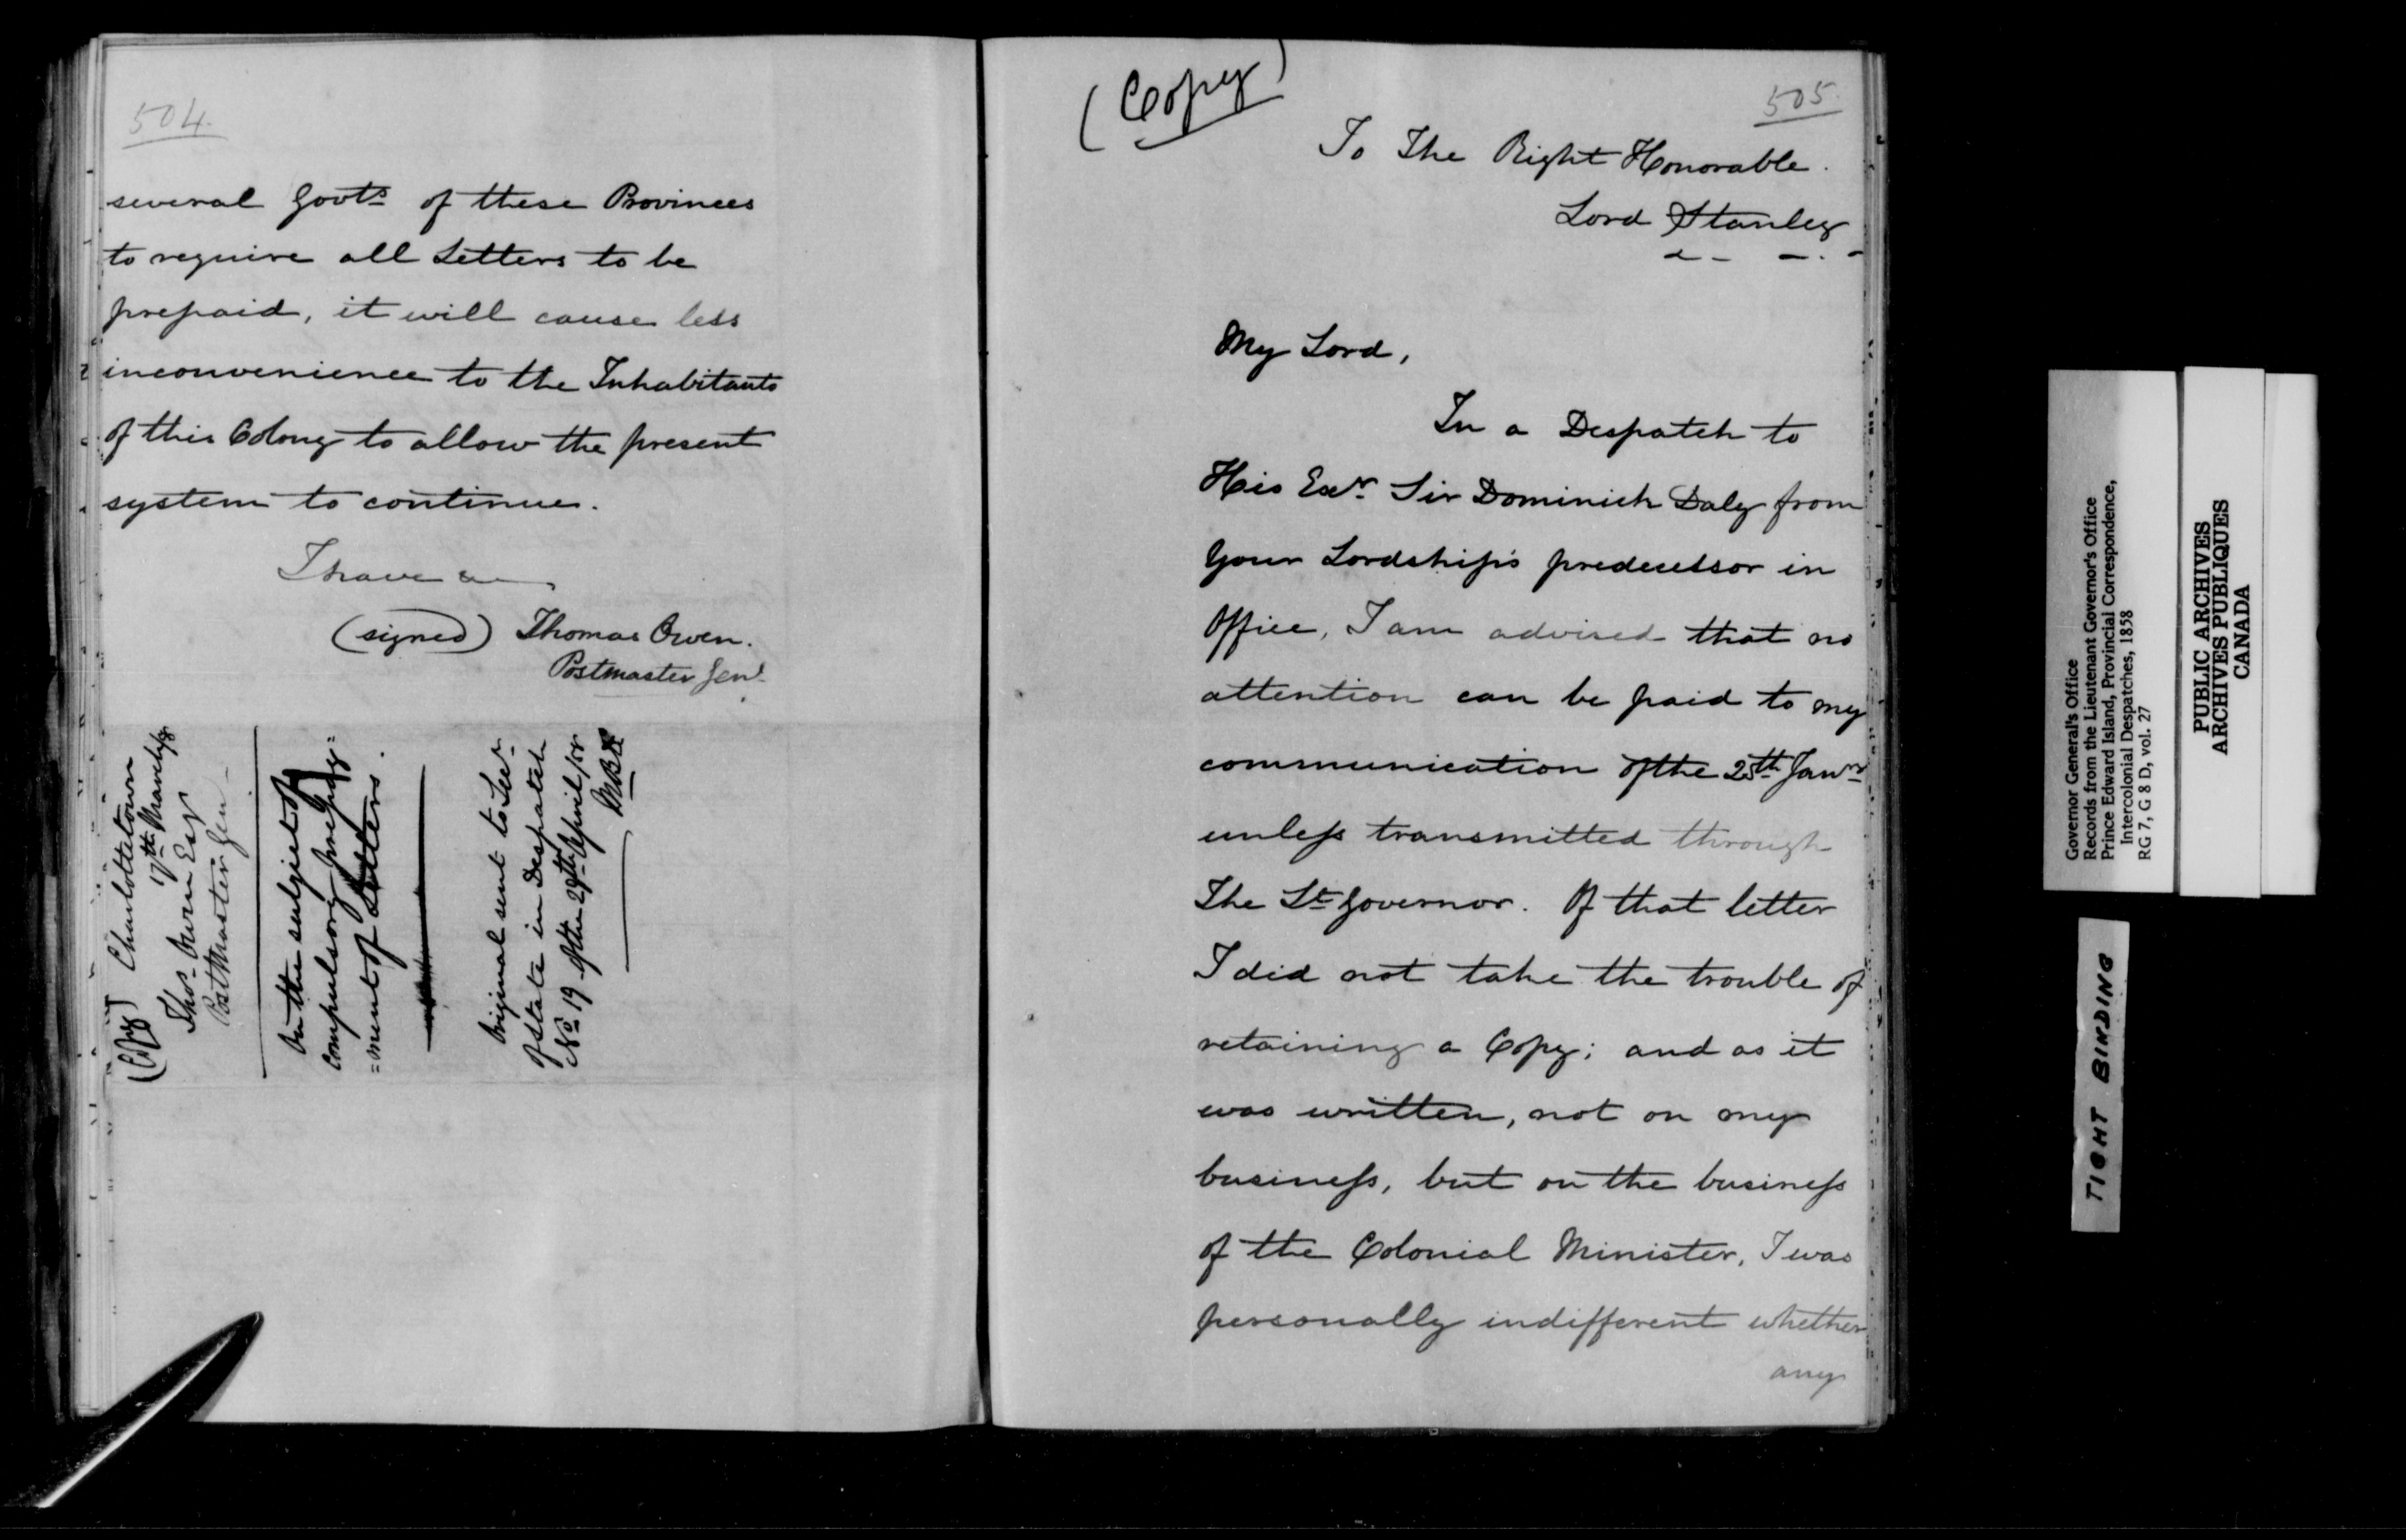 504.
several Govts of these Provinces
to require all Letters to be
prepaid, it will cause less
inconvenience to the Inhabitants
of this Colony to allow the present
system to continue.
I have
(signed) Thomas Owen.
Postmaster Genl.
(Copy) Charlottetown
17th March
Thos. Owen Esq
Post Master Gen
On the subject of
compulsory prepay=
=ment of Letters.
Original sent to Secy.
of State in Despatch
No. 19 of the 29th April /58
(Copy)
505.
To The Right Honorable.
Lord Stanley
My Lord,
In a Despatch to
His Exy. Sir Dominick Daly from
Your Lordship's predecessor in
Office, I am advised that no
attention can be paid to my
communication of the 25th Jany.
unless transmitted through
The Lt Governor. Of that letter
I did not take the trouble of
retaining a Copy; and as it
was written, not on my
business, but on the business
of the Colonial Minister, I was
personally indifferent whether
any
Governor General's Office
Records from the Lieutenant Governor's Office
Prince Edward Island, Provincial Correspondence,
Intercolonial Despatches, 1858
RG 7, G 8 D, vol. 27
PUBLIC ARCHIVES
ARCHIVES PUBLIQUES
CANADA
TIGHT BINDING